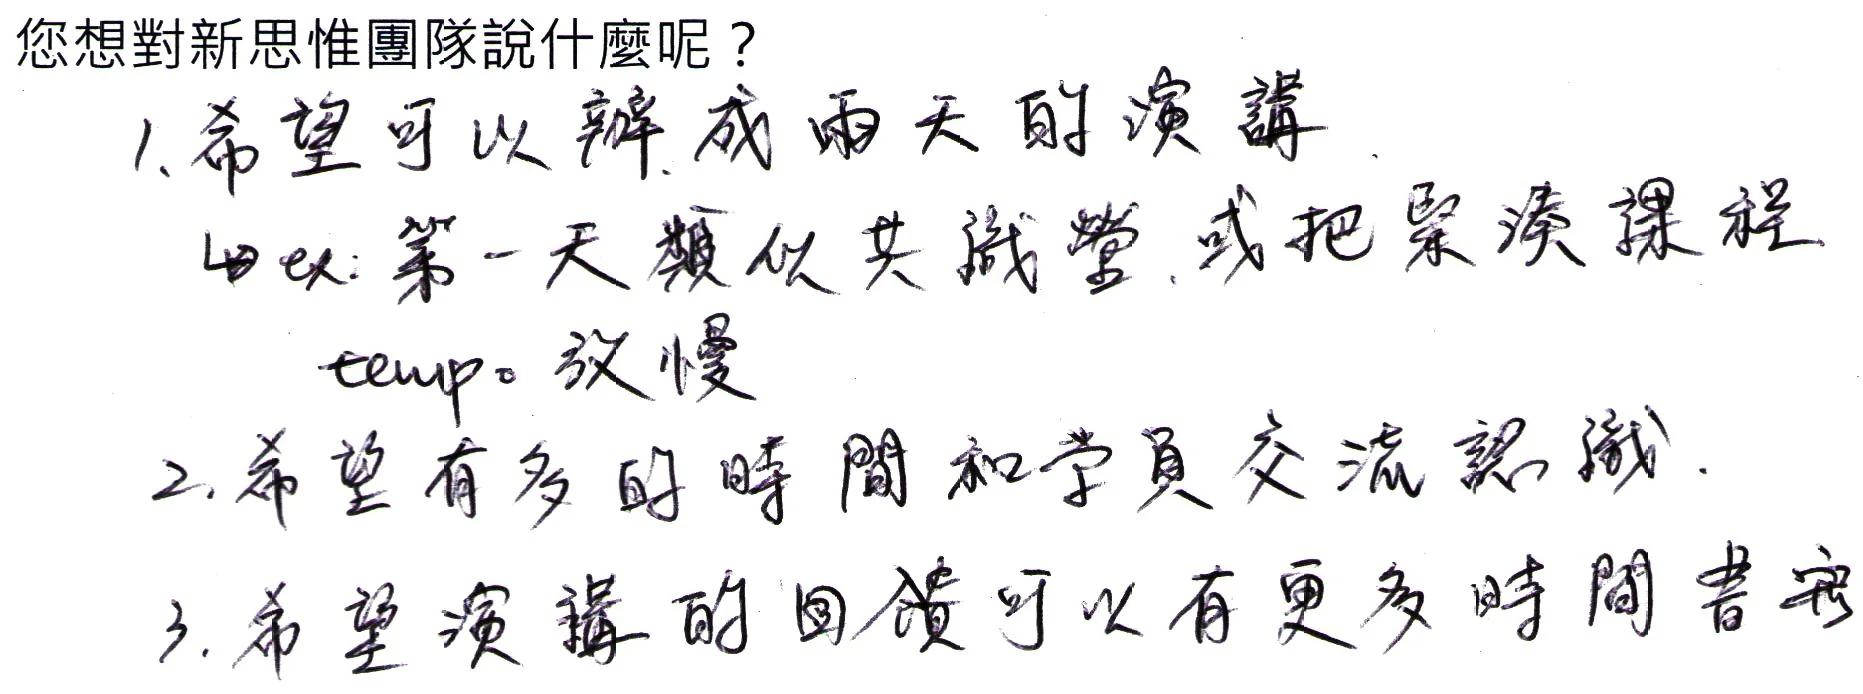 您想對新思惟團隊說什麼呢？
1. 希望可以辦成兩天的演講.
↳ ex: 第一天類似共識營, 或把緊湊課程
tempo 放慢
2. 希望有多的時間和学員交流認識.
3. 希望演講的回饋可以有更多時間書寫